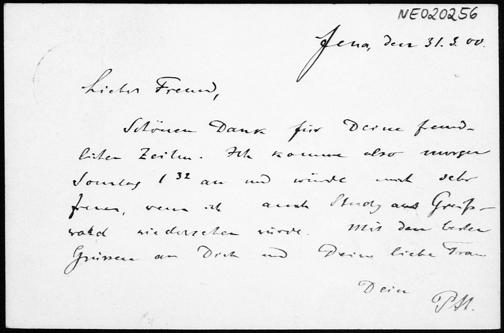 NE020256
Jena, den 31.3.00.
Lieber Freund,
Schönen Dank für Deine freund-
lichen Zeilen. Ich komme also morgen
Sonntag 1 32 an und würde mich sehr
freuen, wenn ich auch Study aus Greifs-
wald wiedersehen würde. Mit den besten
Grüssen an Dich und Deine liebe Frau
Dein
PSt.